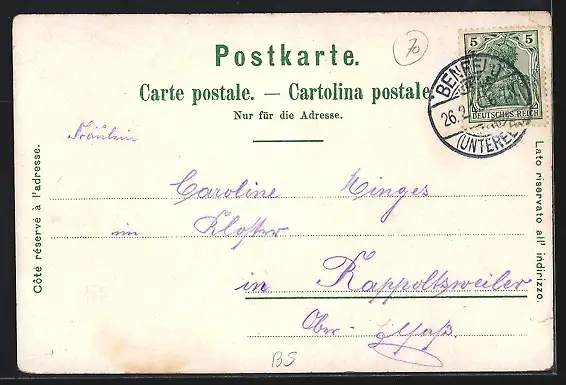 Postkarte.
70
5 5
DEUTSCHES REICH
BENFELD
26.2
(UNTEREL
Carte postale. — Cartolina postale
Nur für die Adresse.
Côté réservé à l'adresse.
Lato riservato all' indirizzo.
Fräulein
Caroline Minges
im Kloster
in Rappoltsweiler
Ober-Elsaß.
BS